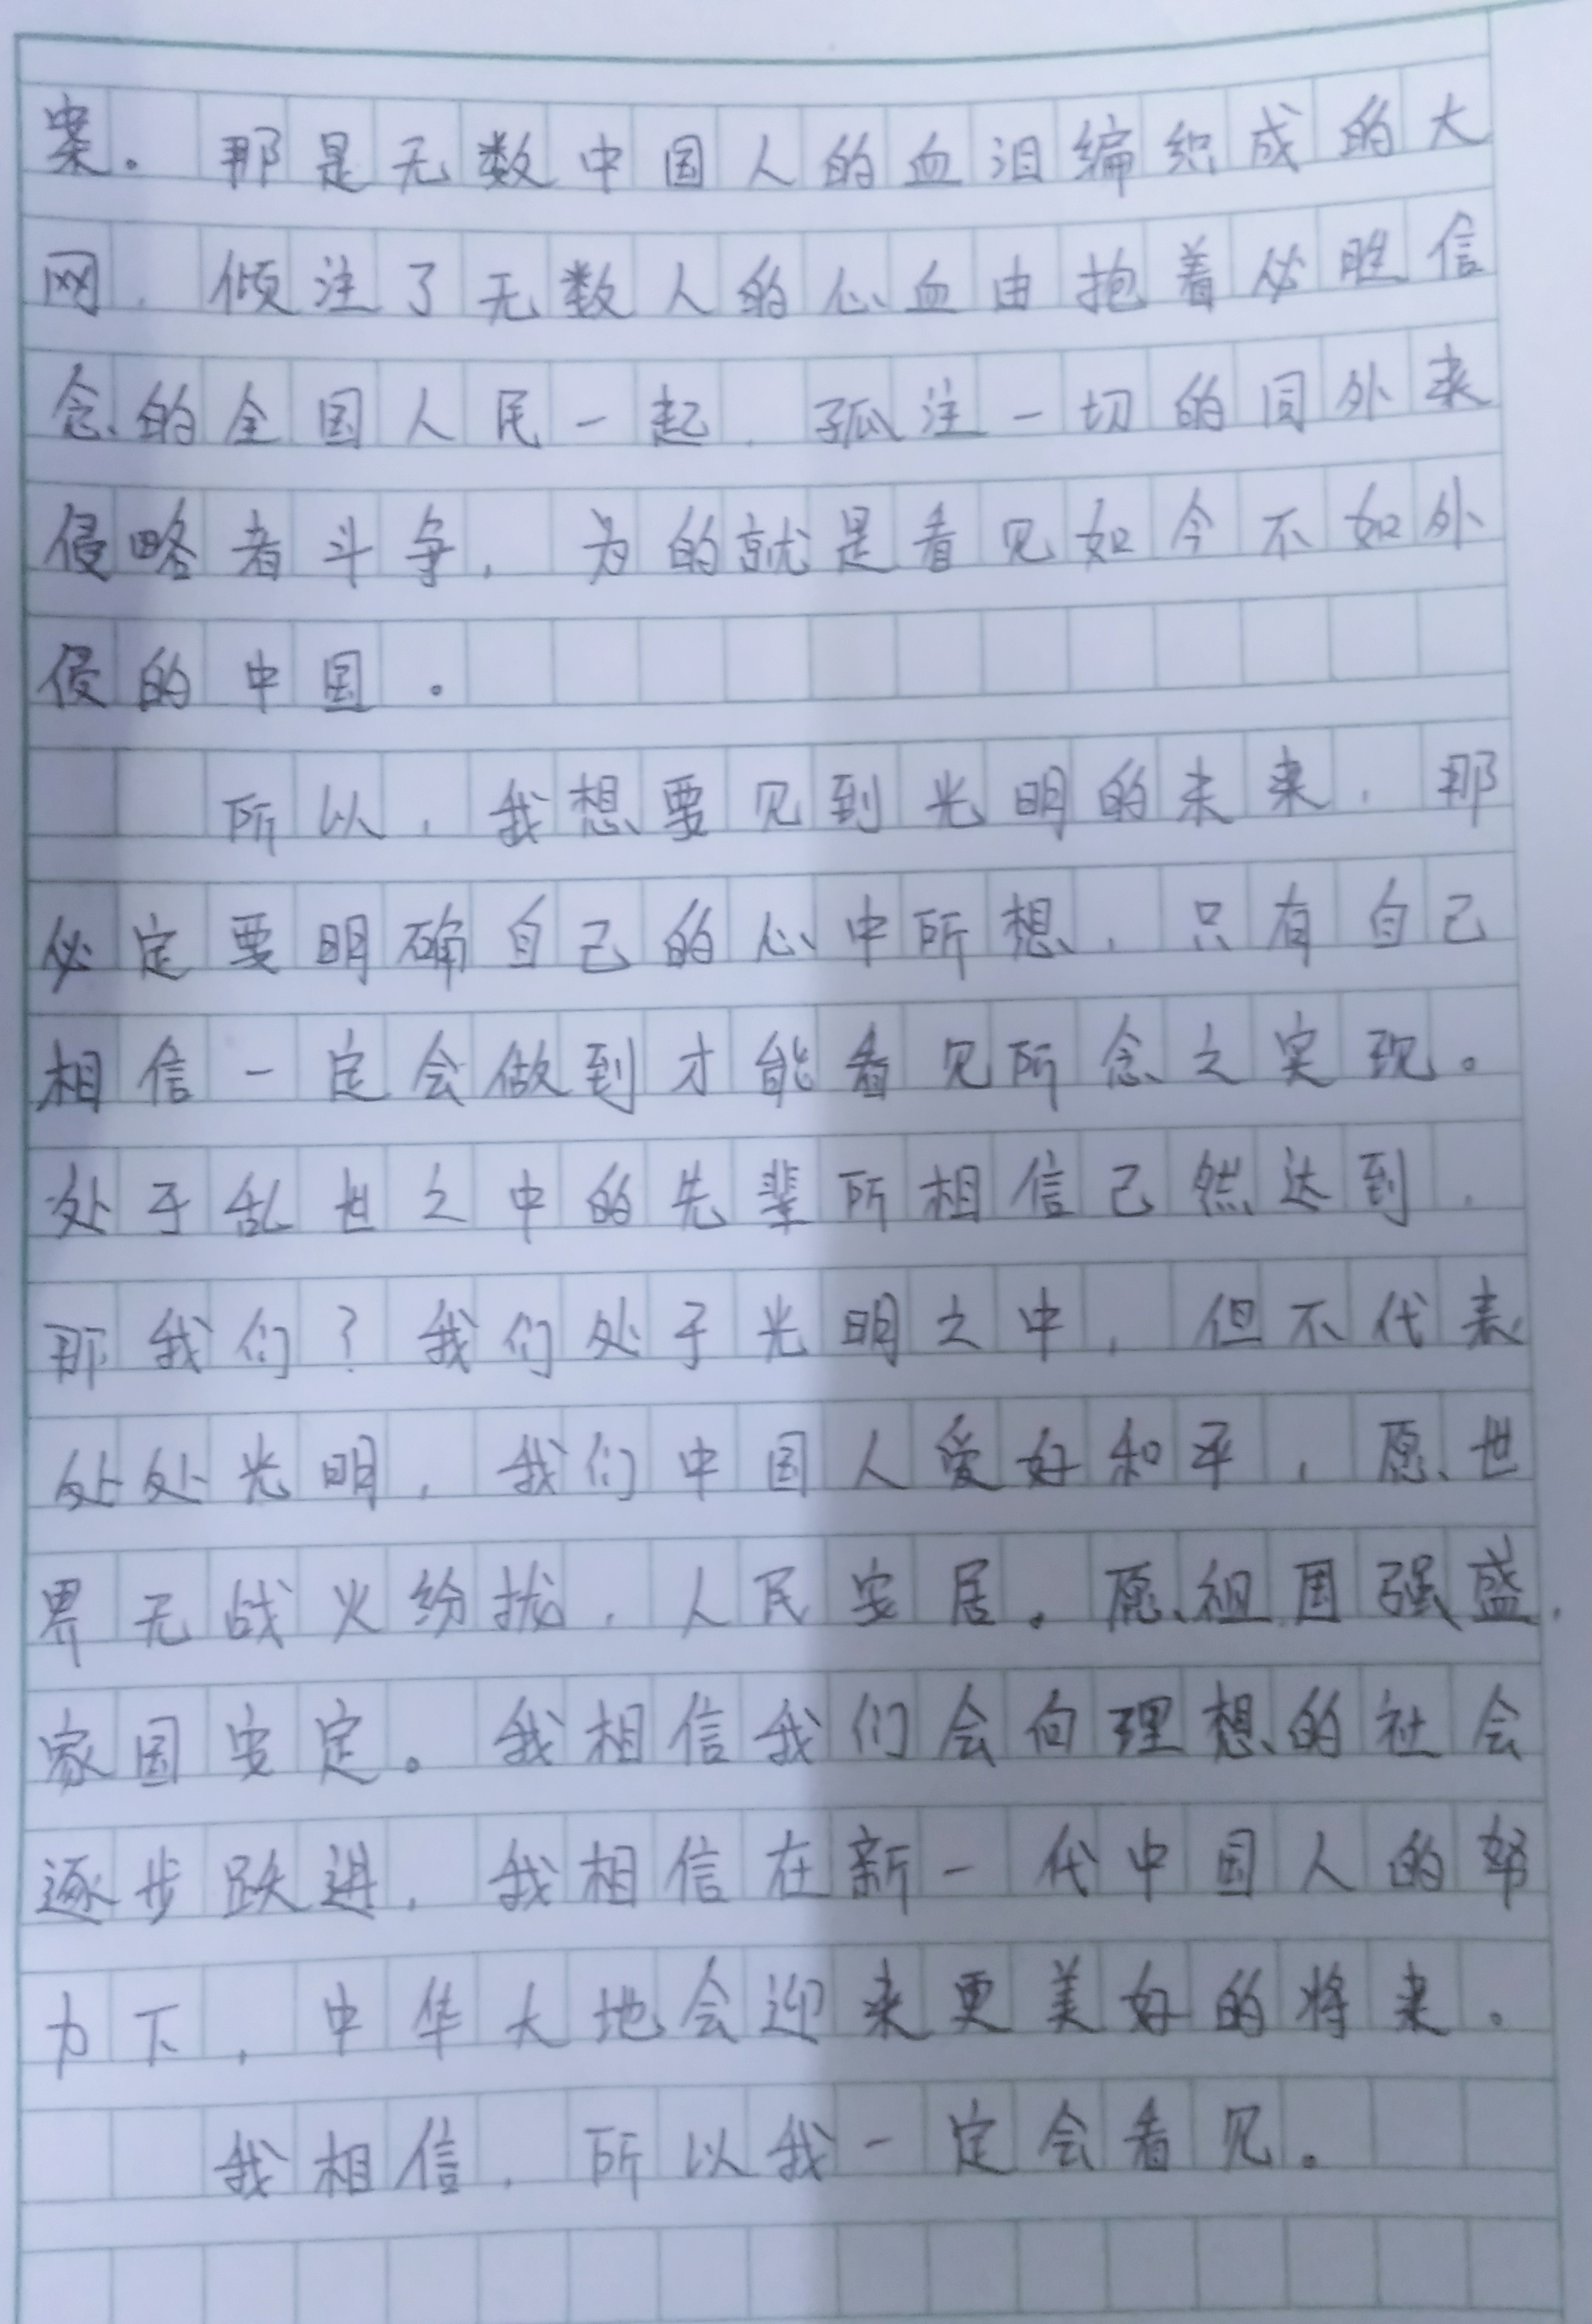 案。那是无数中国人的血泪编织成的大
网,倾注了无数人的心血由抱着必胜信
念的全国人民一起,孤注一切的同外来
侵略者斗争,为的就是看见如今不如外
侵的中国。
所以,我想要见到光明的未来,那
必定要明确自己的心中所想,只有自己
相信一定会做到才能看见所念之实现。
处于乱世之中的先辈所相信己然达到,
那我们?我们处于光明之中,但不代表
处处光明,我们中国人爱好和平,愿世
界无战火纷扰,人民安居。愿祖国强盛,
家国安定。我相信我们会向理想的社会
逐步跃进,我相信在新一代中国人的努
力下,中华大地会迎来更美好的将来。
我相信,所以我一定会看见。